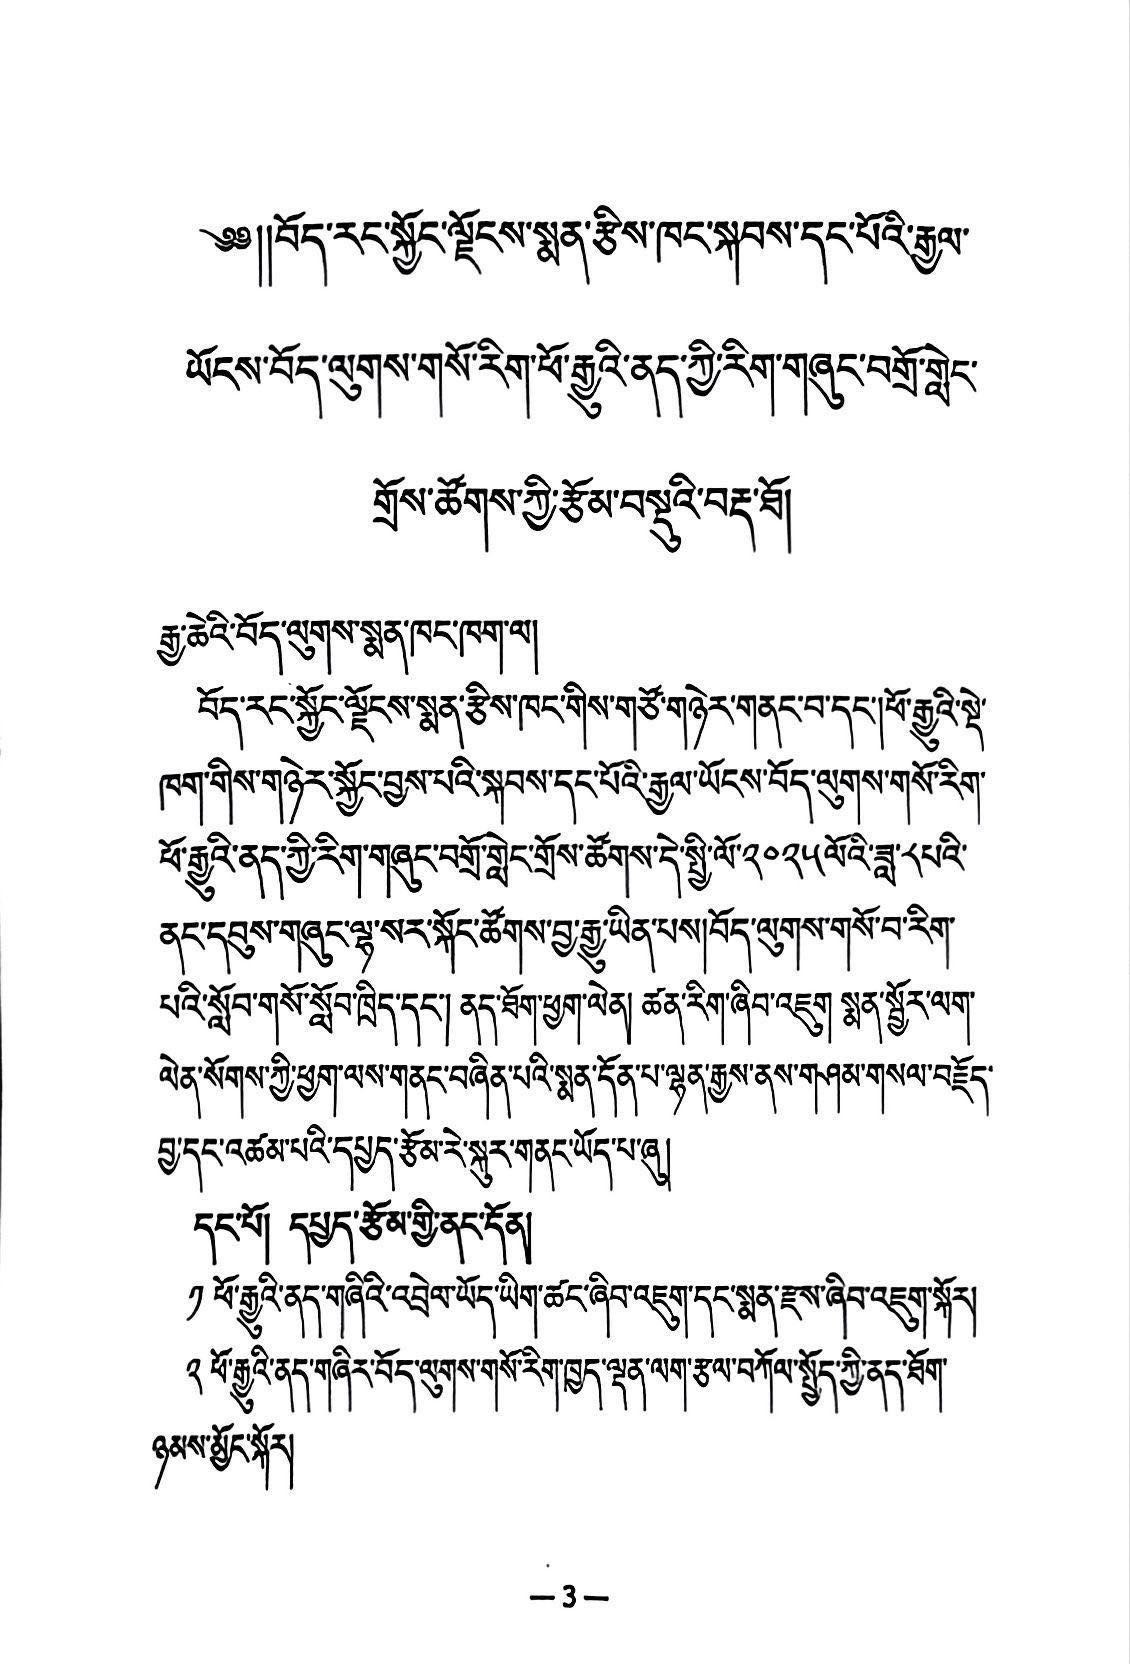 ༄༅།།བོད་རང་སྐྱོང་ལྗོངས་སྨན་རྩིས་ཁང་སྐབས་དང་པོའི་རྒྱལ་
ཡོངས་བོད་ལུགས་གསོ་རིག་ཕོ་རྒྱུའི་ནད་ཀྱི་རིག་གཞུང་བགྲོ་གླེང་
གྲོས་ཚོགས་ཀྱི་རྩོམ་བསྡུའི་བརྡ་ཐོ།
རྒྱ་ཆེའི་བོད་ལུགས་སྨན་ཁང་ཁག་ལ།
བོད་རང་སྐྱོང་ལྗོངས་སྨན་རྩིས་ཁང་གིས་གཙོ་གཉེར་གནང་བ་དང་།ཕོ་རྒྱུའི་སྡེ་
ཁག་གིས་གཉེར་སྐྱོང་བྱས་པའི་སྐབས་དང་པོའི་རྒྱལ་ཡོངས་བོད་ལུགས་གསོ་རིག་
ཕོ་རྒྱུའི་ནད་ཀྱི་རིག་གཞུང་བགྲོ་གླེང་གྲོས་ཚོགས་དེ་སྤྱི་ལོ་༢༠༢༥ལོའི་ཟླ་༨པའི་
ནང་དབུས་གཞུང་ལྷ་སར་སྐོང་ཚོགས་བྱ་རྒྱུ་ཡིན་པས།བོད་ལུགས་གསོ་བ་རིག་
པའི་སློབ་གསོ་སློབ་ཁྲིད་དང་། ནད་ཐོག་ཕྱག་ལེན། ཚན་རིག་ཞིབ་འཇུག སྨན་སྦྱོར་ལག་
ལེན་སོགས་ཀྱི་ཕྱག་ལས་གནང་བཞིན་པའི་སྨན་དོན་པ་ལྷན་རྒྱས་ནས་གཤམ་གསལ་བརྗོད་
བྱ་དང་འཚམ་པའི་དཔྱད་རྩོམ་རེ་སྐུར་གནང་ཡོད་པ་ཞུ།
དང་པོ། དཔྱད་རྩོམ་གྱི་ནང་དོན།
༡ ཕོ་རྒྱུའི་ནད་གཞིའི་འབྲེལ་ཡོད་ཡིག་ཚང་ཞིབ་འཇུག་དང་སྨན་རྫས་ཞིབ་འཇུག་སྐོར།
༢ ཕོ་རྒྱུའི་ནད་གཞིར་བོད་ལུགས་གསོ་རིག་ཁྱད་ལྡན་ལག་རྩལ་བཀོལ་སྤྱོད་ཀྱི་ནད་ཐོག་
ཉམས་མྱོང་སྐོར།
— 3 —